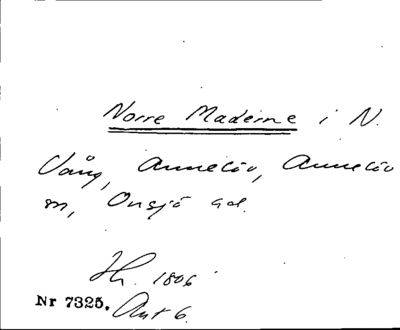 Norre Maderne i N.
Vång, Annelöv, Annelöv
sn, Onsjö hd.
Lh. 1806
Nr 7325. Akt 6.